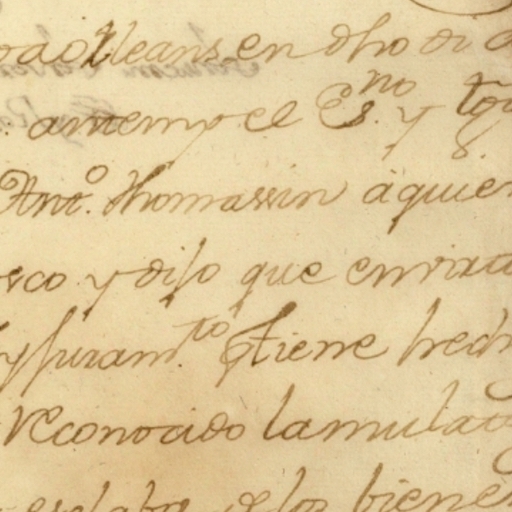 orleans en dho di a
antemy el Es.no y tgo
Anto. thomassin a quien
sco y dijo que en virtu
y juram.to q tiene hech
Reconocido la mulata
esclaba de los biene